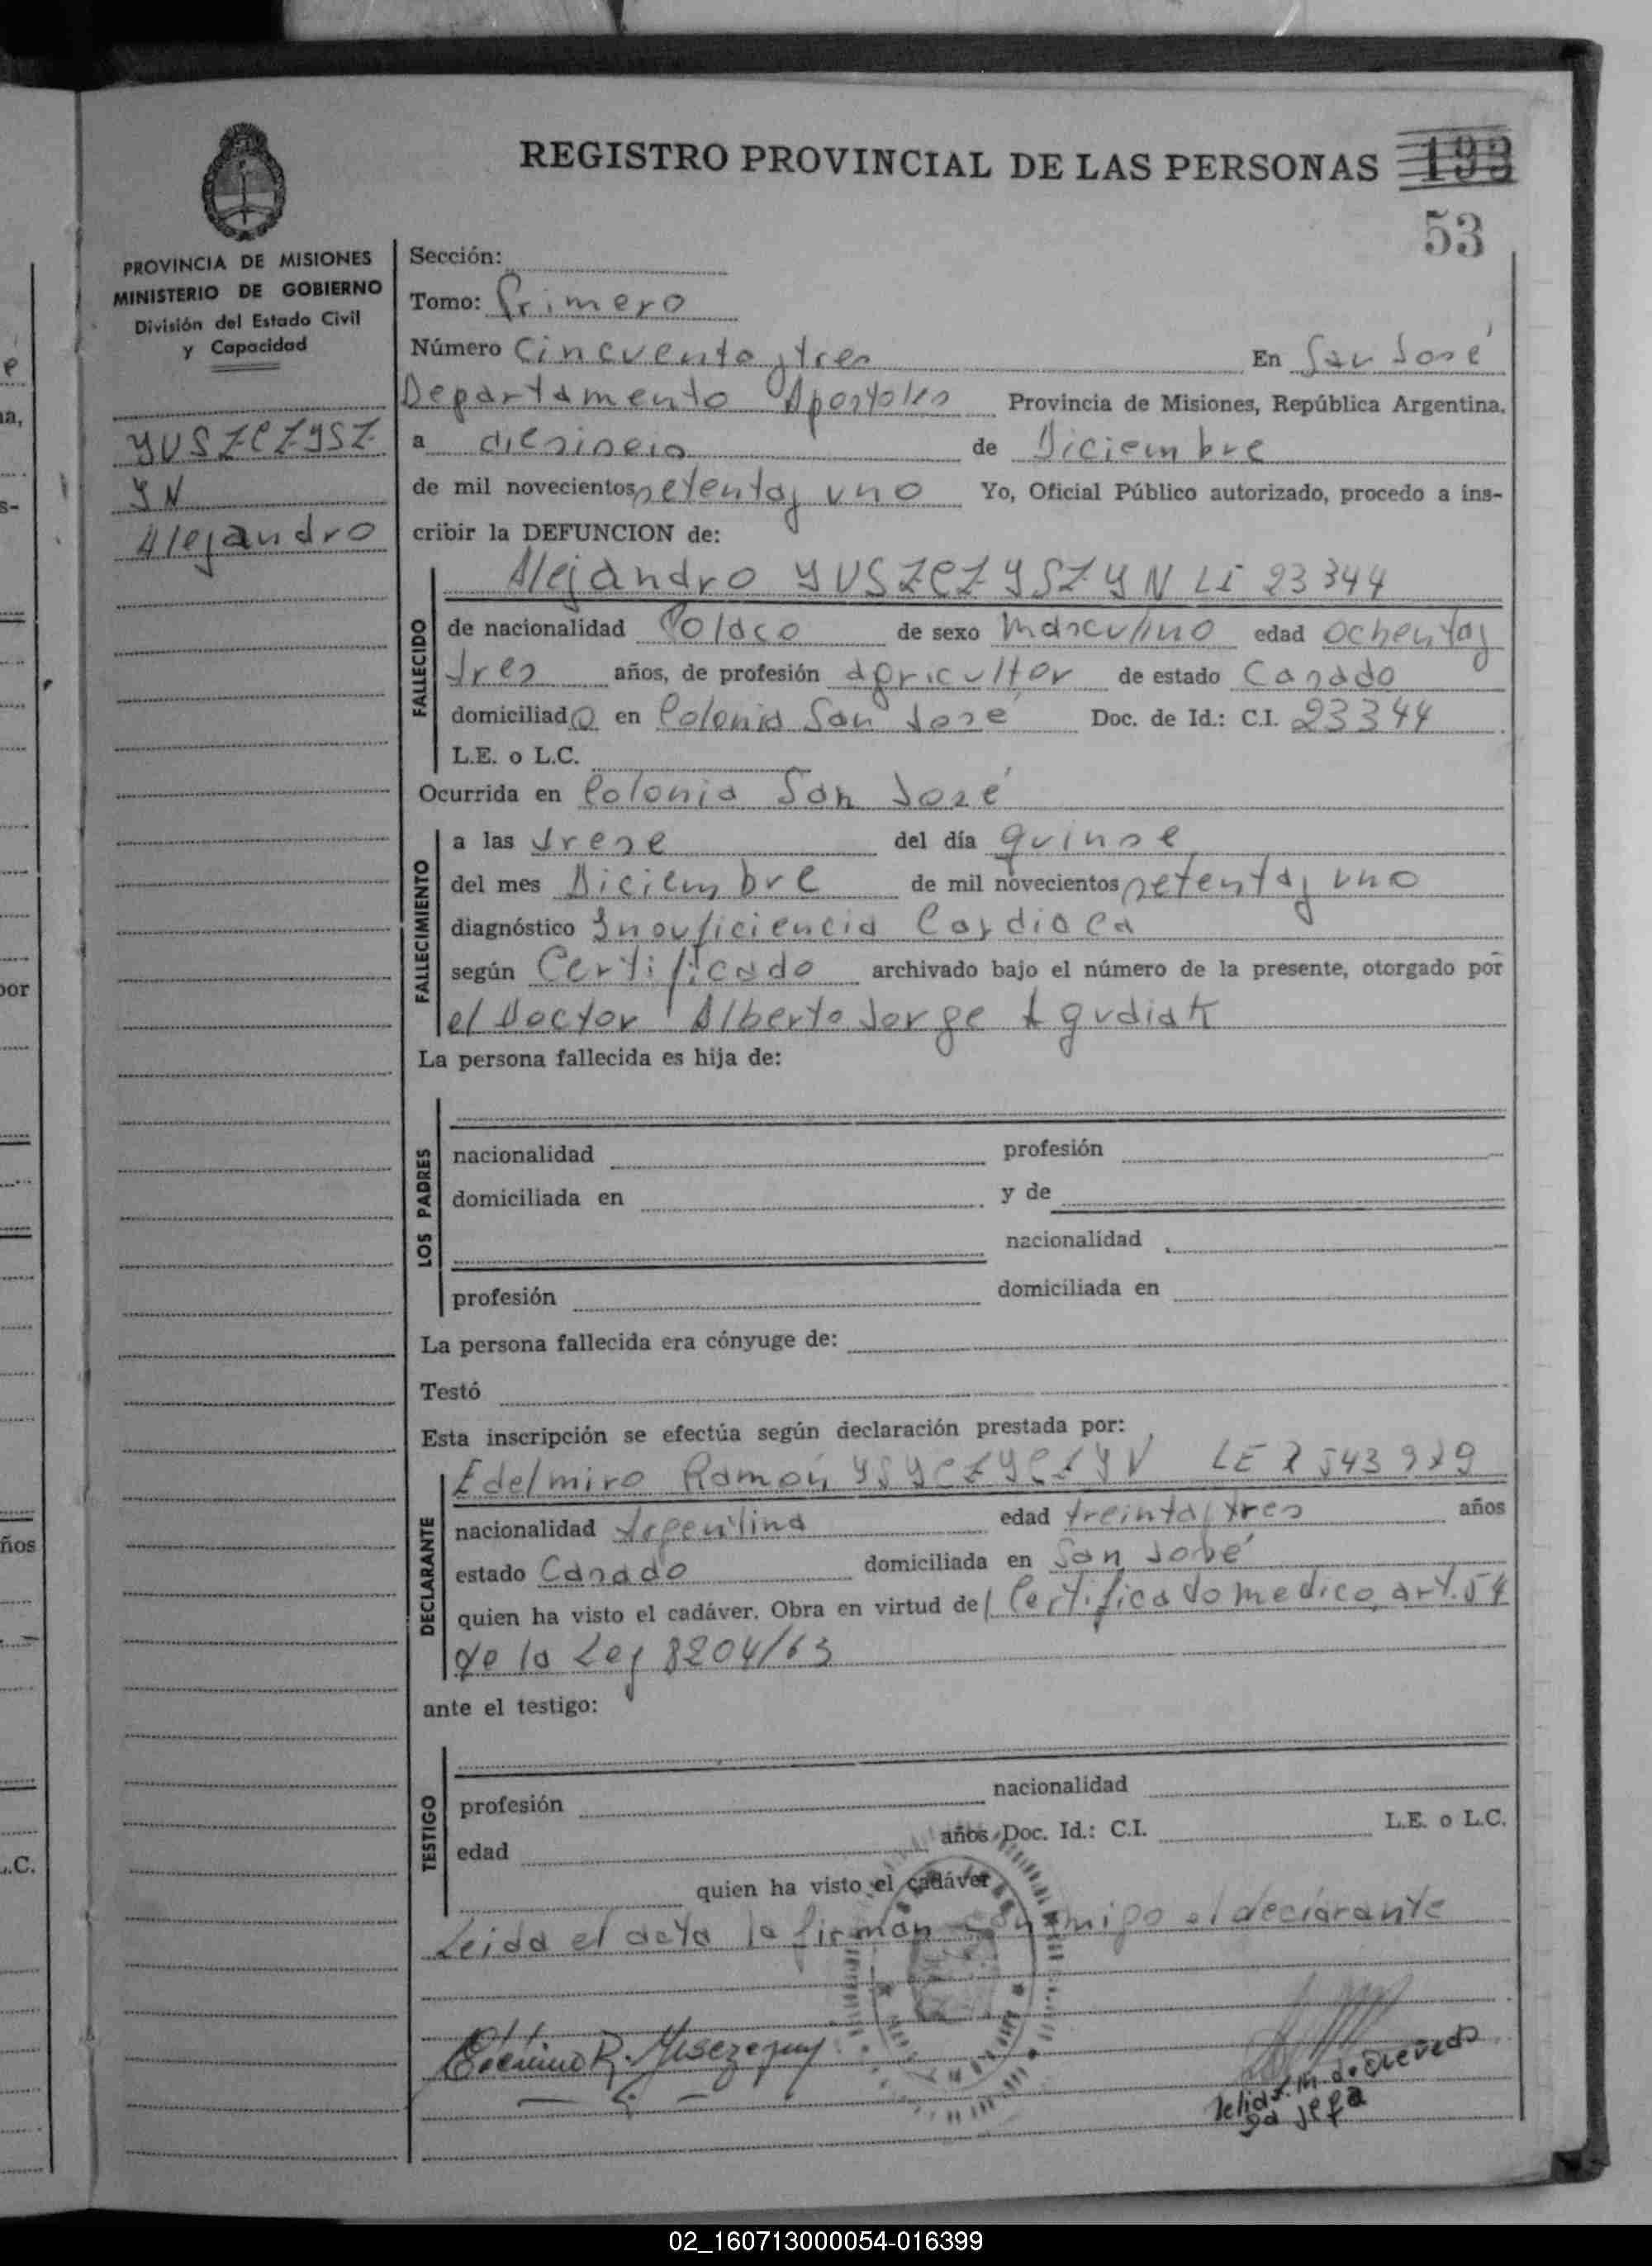 REGISTRO PROVINCIAL DE LAS PERSONAS 193
53
PROVINCIA DE MISIONES
MINISTERIO DE GOBIERNO
División del Estado Civil
y Capacidad
YUSZCZYSZ
YN
Alejandro
Sección:
Tomo: Primero
Número Cincuenta y tres En San José
Departamento Apostoles Provincia de Misiones, República Argentina.
a dieciseis de Diciembre
de mil novecientos setenta y uno Yo, Oficial Público autorizado, procedo a ins-
cribir la DEFUNCION de:
Alejandro YUSZCZYSZYN CI 23344
FALLECIDO
de nacionalidad Polaco de sexo Masculino edad Ochenta y
tres años, de profesión agricultor de estado Casado
domiciliado en Colonia San José Doc. de Id.: C.I. 23344
L.E. o L.C.
Ocurrida en Colonia San José
FALLECIMIENTO
a las trese del día quinse
del mes Diciembre de mil novecientos setenta y uno
diagnóstico Insuficiencia Cardiaca
según Certificado archivado bajo el número de la presente, otorgado por
el Doctor Alberto Jorge Agudiak
La persona fallecida es hija de:
LOS PADRES
nacionalidad profesión
domiciliada en y de
nacionalidad
profesión domiciliada en
La persona fallecida era cónyuge de:
Testó
Esta inscripción se efectúa según declaración prestada por:
DECLARANTE
Edelmiro Ramón YSYCZYCZYN LE
nacionalidad Argentina edad treinta y tres años
estado Casado domiciliada en San José
quien ha visto el cadáver. Obra en virtud de Certificado medico, art. 54
de la Ley 8204/63
ante el testigo:
TESTIGO
profesión nacionalidad
edad años Doc. Id.: C.I. L.E. o L.C.
quien ha visto el cadáver
Leida el acta la firman conmigo el declarante
02_160713000054-016399